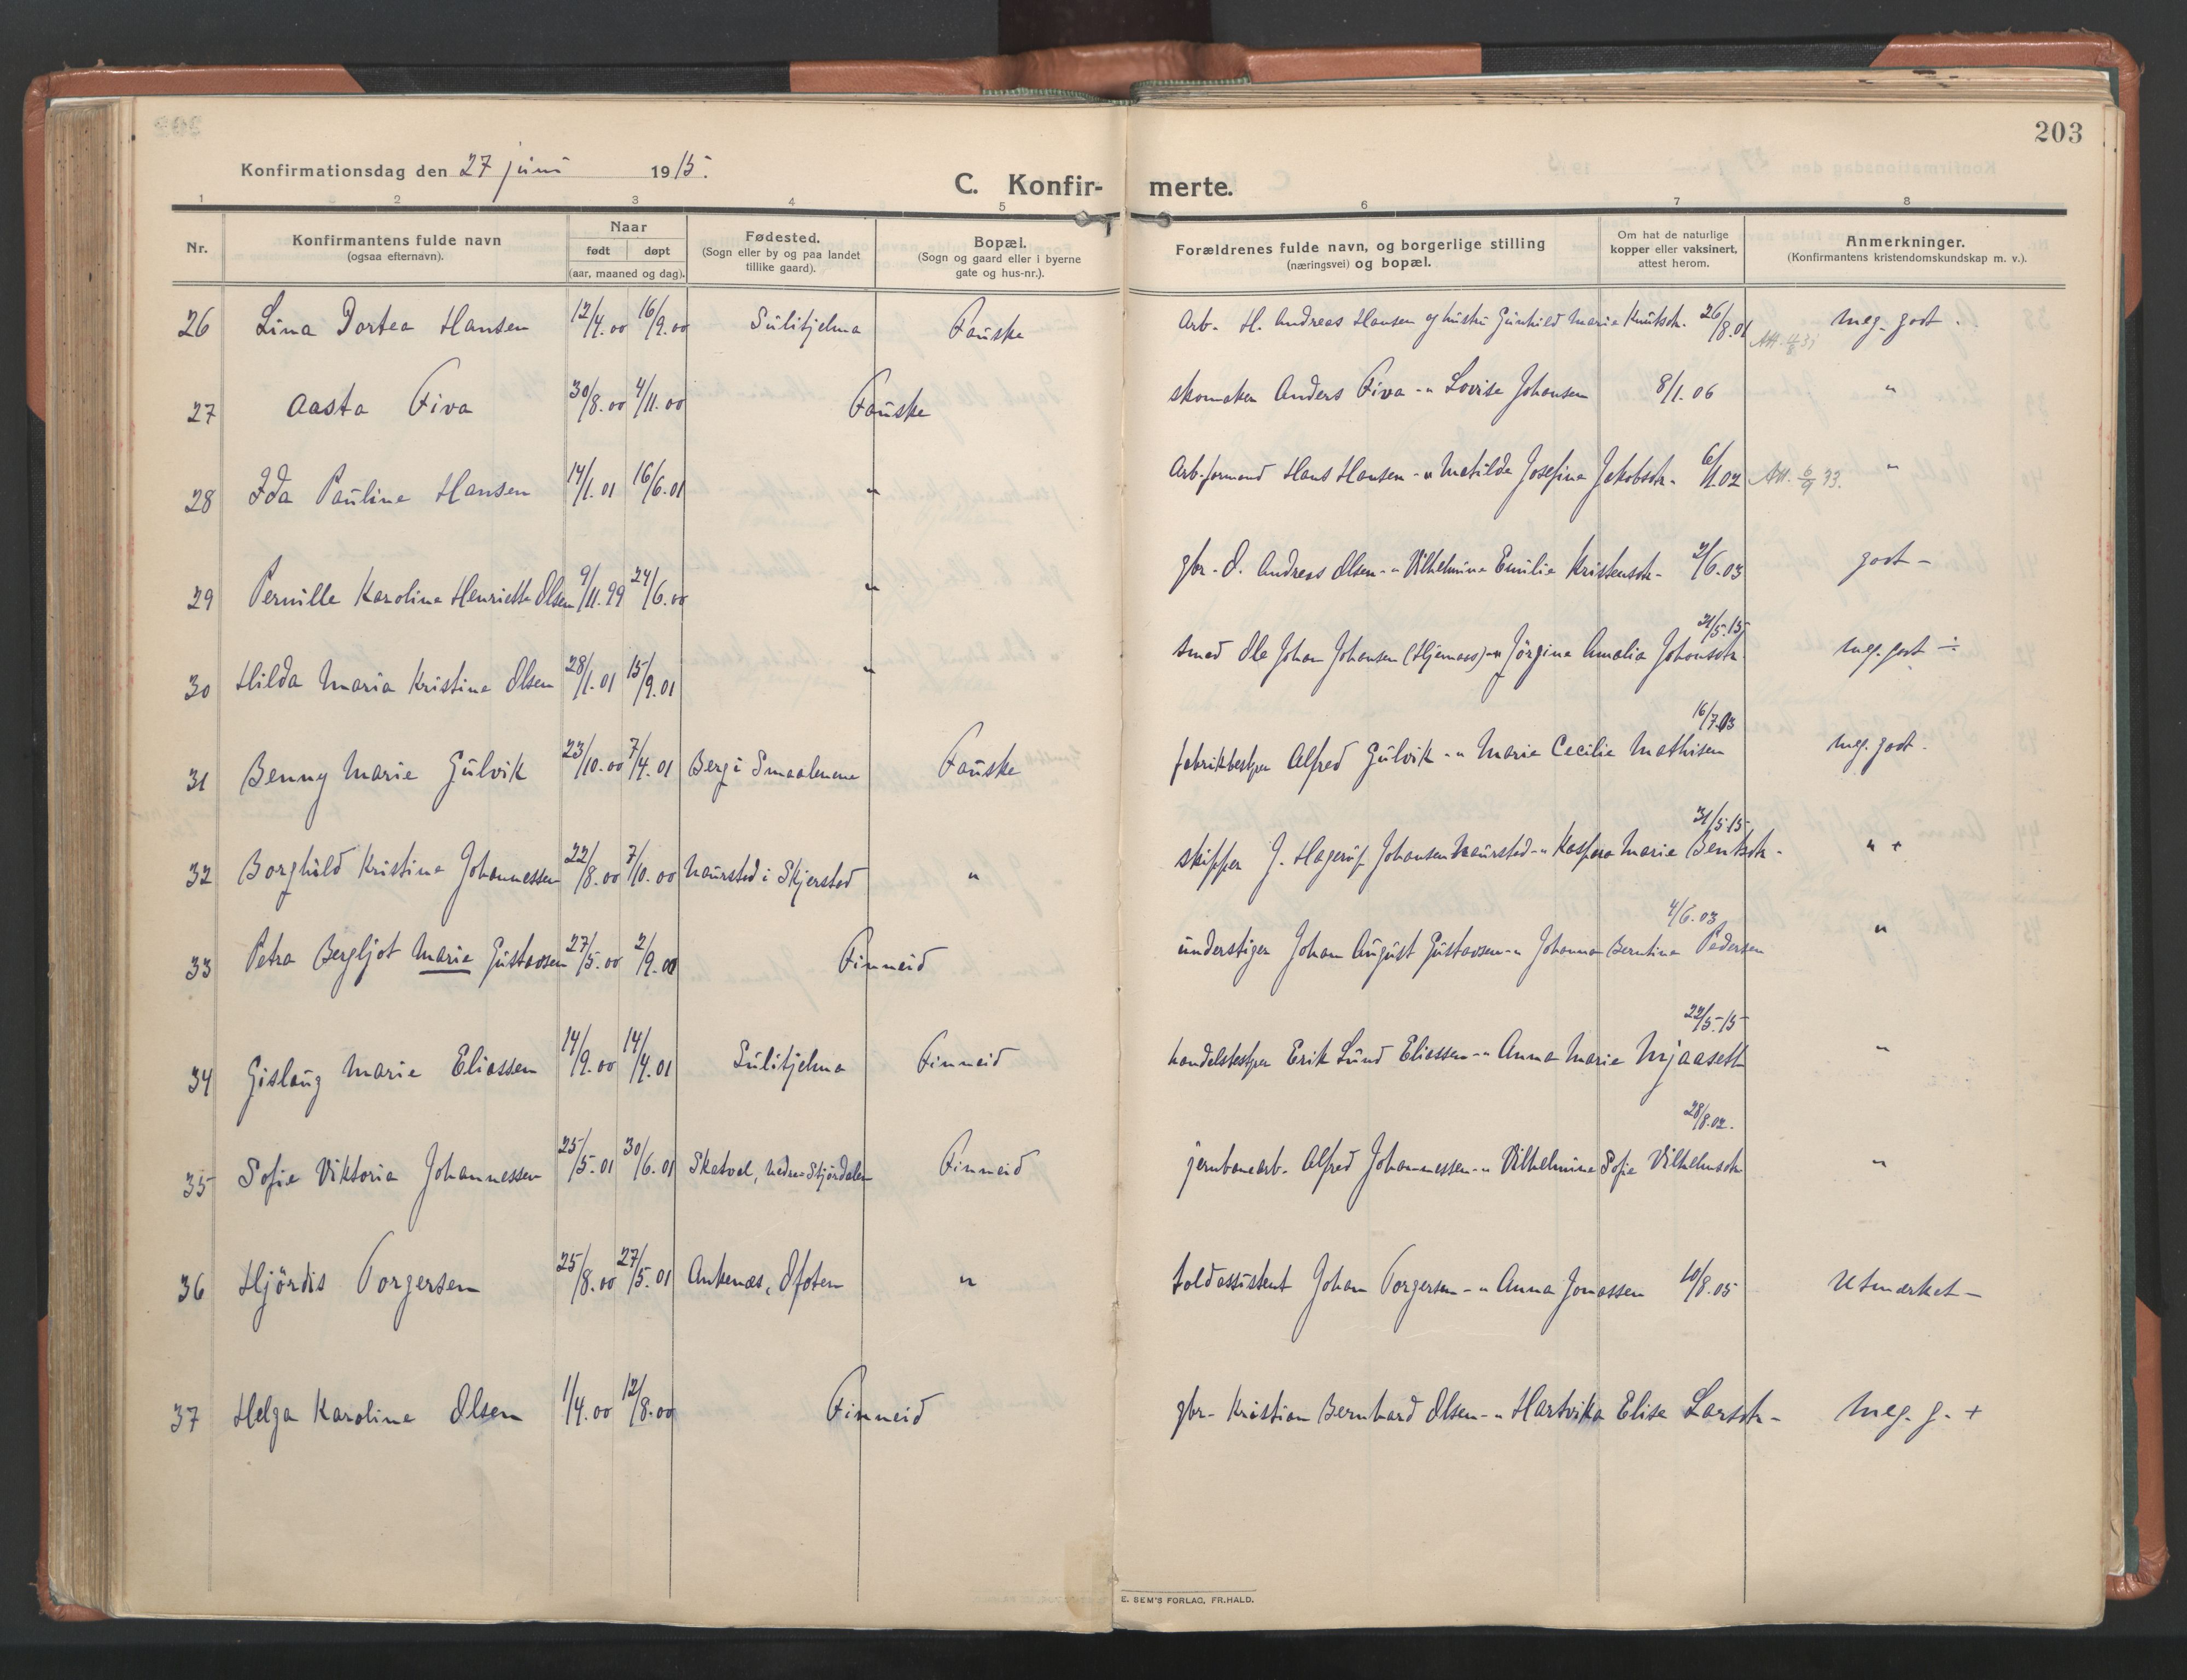 203
Konfirmationsdag den 27 juni 1915.
C. Konfir- merte.
1 2 3 4 5 6 7 8
Nr.
Konfirmantens fulde navn
(ogsaa efternavn).
Naar
født døpt
(aar, maaned og dag).
Fødested.
(Sogn eller by og paa landet
tillike gaard).
Bopæl.
(Sogn og gaard eller i byerne
gate og hus-nr.).
Forældrenes fulde navn, og borgerlige stilling
(næringsvei) og bopæl.
Om hat de naturlige
kopper eller vaksinert,
attest herom.
Anmerkninger.
(Konfirmantens kristendomskundskap m. v.).
26 Lina Dortea Hansen 12/4.00 16/9.00 Sulitjelma Fauske Arb. H. Andreas Hansen og hustru Gunhild Marie Knutsdtr. 26/8.01 meg. godt.
27 Aasta Fiva 30/8.00 4/11.00 Fauske skomaker Anders Fiva - " Lovise Johansen 8/1.06 "
28 Ida Pauline Hansen 14/1.01 16/6.01 " Arb.formand Hans Hansen - " Matilde Josefine Jakobsdtr. 6/1.02 Att. 6/9 33. "
29 Pernille Karoline Henriette Olsen 9/11.99 24/6.00 " gbr. O. Andreas Olsen - " Vilhelmine Emilie Kristensdtr. 2/6.03 godt -
30 Hilda Maria Kristine Olsen 28/1.01 15/9.01 " smed Ole Johan Johansen (Hjemaas) - " Jörgine Amalia Johansdtr. 31/5.15 meg. godt ÷
31 Benny Marie Gulvik 23/10.00 7/4.01 Berg i Smaalenene Fauske fabrikbestyrer Alfred Gulvik - " Marie Cecilie Mathisen 16/7.03 meg. godt.
32 Borghild Kristine Johannessen 22/8.00 7/10.00 Naurstad i Skjerstad " skipper J. Hagerup Johansen Naurstad - " Kaspara Marie Bentsdtr. 31/5.15 " +
33 Petra Bergljot Marie Gustavsen 27/5.00 2/9.00 Finneid understiger Johan August Gustavsen - " Johanna Berntine Pedersen 4/6.03 "
34 Gislaug Marie Eliassen 14/9.00 14/4.01 Sulitjelma Finneid handelsbestyrer Erik Lund Eliassen - " Anna Marie Mjaaseth 22/5.15 "
35 Sofie Viktoria Johannessen 25/5.01 30/6.01 Skatval, Nedre Stjørdalen Finneid jernbanearb. Alfred Johannessen - " Vilhelmine Sofie Vilhelmsdtr. 28/8.02. "
36 Hjördis Torgersen 25/8.00 27/5.01 Ankenæs, Ofoten " toldassistent Johan Torgersen - " Anna Jonassen 10/8.05 Utmærket -
37 Helga Karoline Olsen 1/4.00 12/8.00 Finneid gbr. Kristian Bernhard Olsen - " Hartvika Elise Larsdtr. meg. g. +
E. SEM'S FORLAG, FR.HALD.